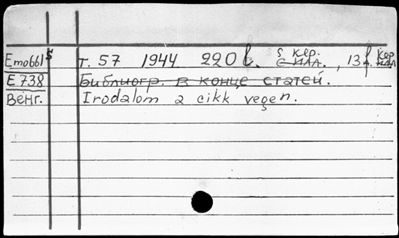 5 кер.
Emob61⁵ т. 57 1944 220 l. с илл., 13 l. кор илл.
E 738 Библиогр. в конце статей.
Венг. Irodalom a cikk vegen.